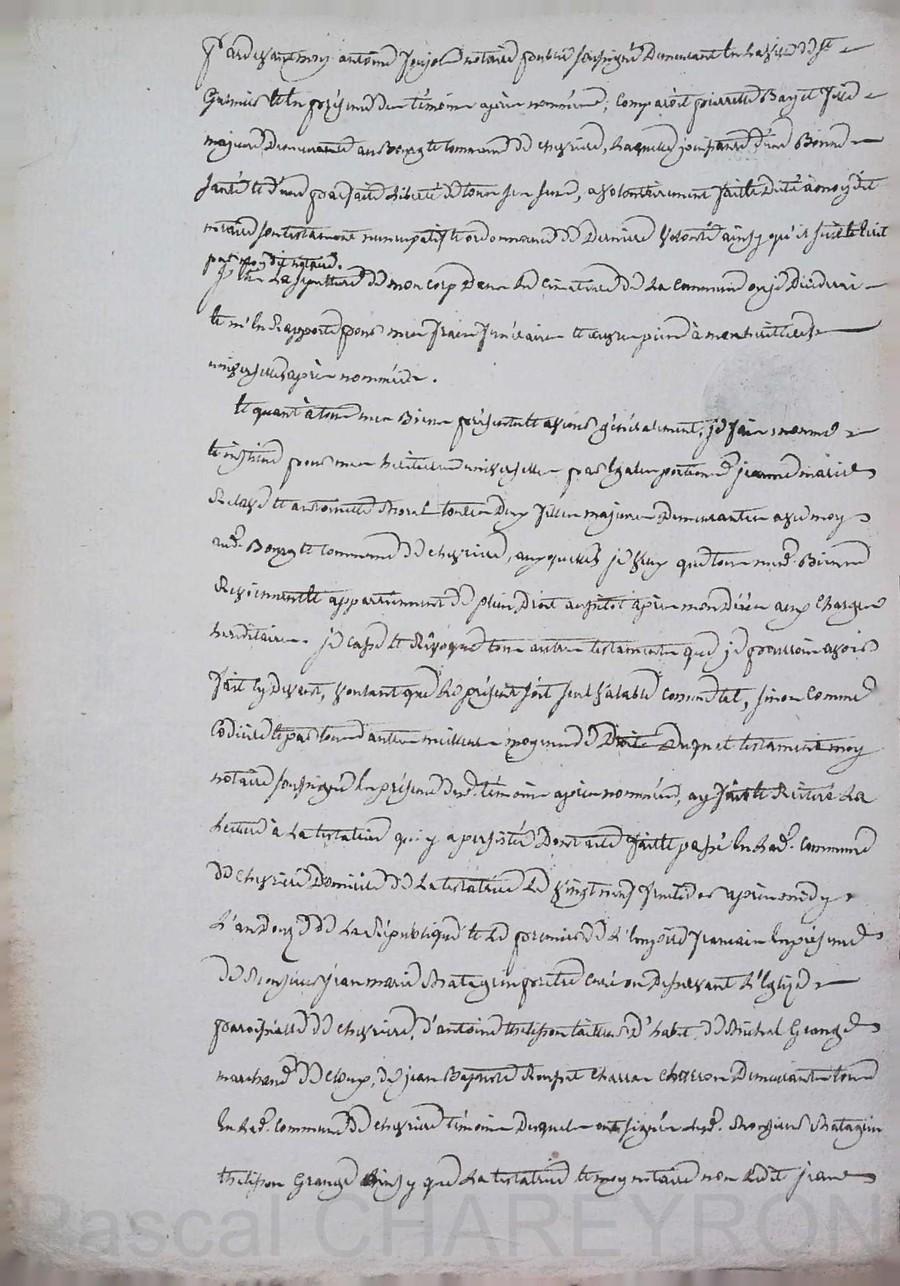 Pardevant moy antoine Joujol notaire public soussigné Demeurant en La ville de St
Galmier et en présence des témoins après nommés, Comparoit pierrette Bayet fille
majeure Demeurante au Bourg et Commune de chevrieres, Laquelle jouissante d'une Bonne
santé et d'une parfaite Liberté de tous ses sens, a volontairement fait et dicté à moy dit
notaire son testament nuncupatif et ordonnance de Derniere volonté ainsy qu'il suit et Ecrit
par moy dit notaire.
La sepulture de mon corps Dans Le Cimetiere de La Commune ou je Décéderai
et m'en Rapporte pour mes frais funéraires et œuvres pies à mes heritieres
universelles après nommées.
Et quant à tous mes Biens présents et avenir généralement, je fais nomme
et institue pour mes heritieres universelles par Egales portions jeanne marie
et antoinette tous deux filles majeures Demeurantes avec moy
aud. Bourg et Commune de chevrieres, auxquelles je veux que tous mesd. Biens
Reviennent et appartiennent de plein Droit aussitôt après mon Décès aux Charges
hereditaires. je casse et Révoque tous autres testaments que je pourrois avoir
fait cy devant, voulant que Le présent soit seul valable comme tel, sinon comme
Codicille et par tous d'autres meilleurs moyens de Droit Duquel testament moy
notaire soussigné En présence desd. témoins après nommés, ay fait et Reiteré La
Lecture à La testatrice qui y a persisté Dont acte fait et passé En Lad. Commune
de chevrieres Domicile de La testatrice Le vingt neuf fructidor après midy
L'an Douze de La République et Le premier de L'Empire français En présence
de Monsieur jean marie Matagrin prêtre curé ou Desservant L'Eglise
paroissiale de chevrieres, d'antoine thelisson tailleur d'habit, de Michel Grange
marchand de Cloux, de jean Baptiste Charron Demeurants tous
En Lad. Commune de chevrieres témoins Desquels ont signé Led. Monsieur Matagrin
thelisson Grange ainsy que La testatrice et moy notaire non Ledit jean
Pascal CHAREYRON